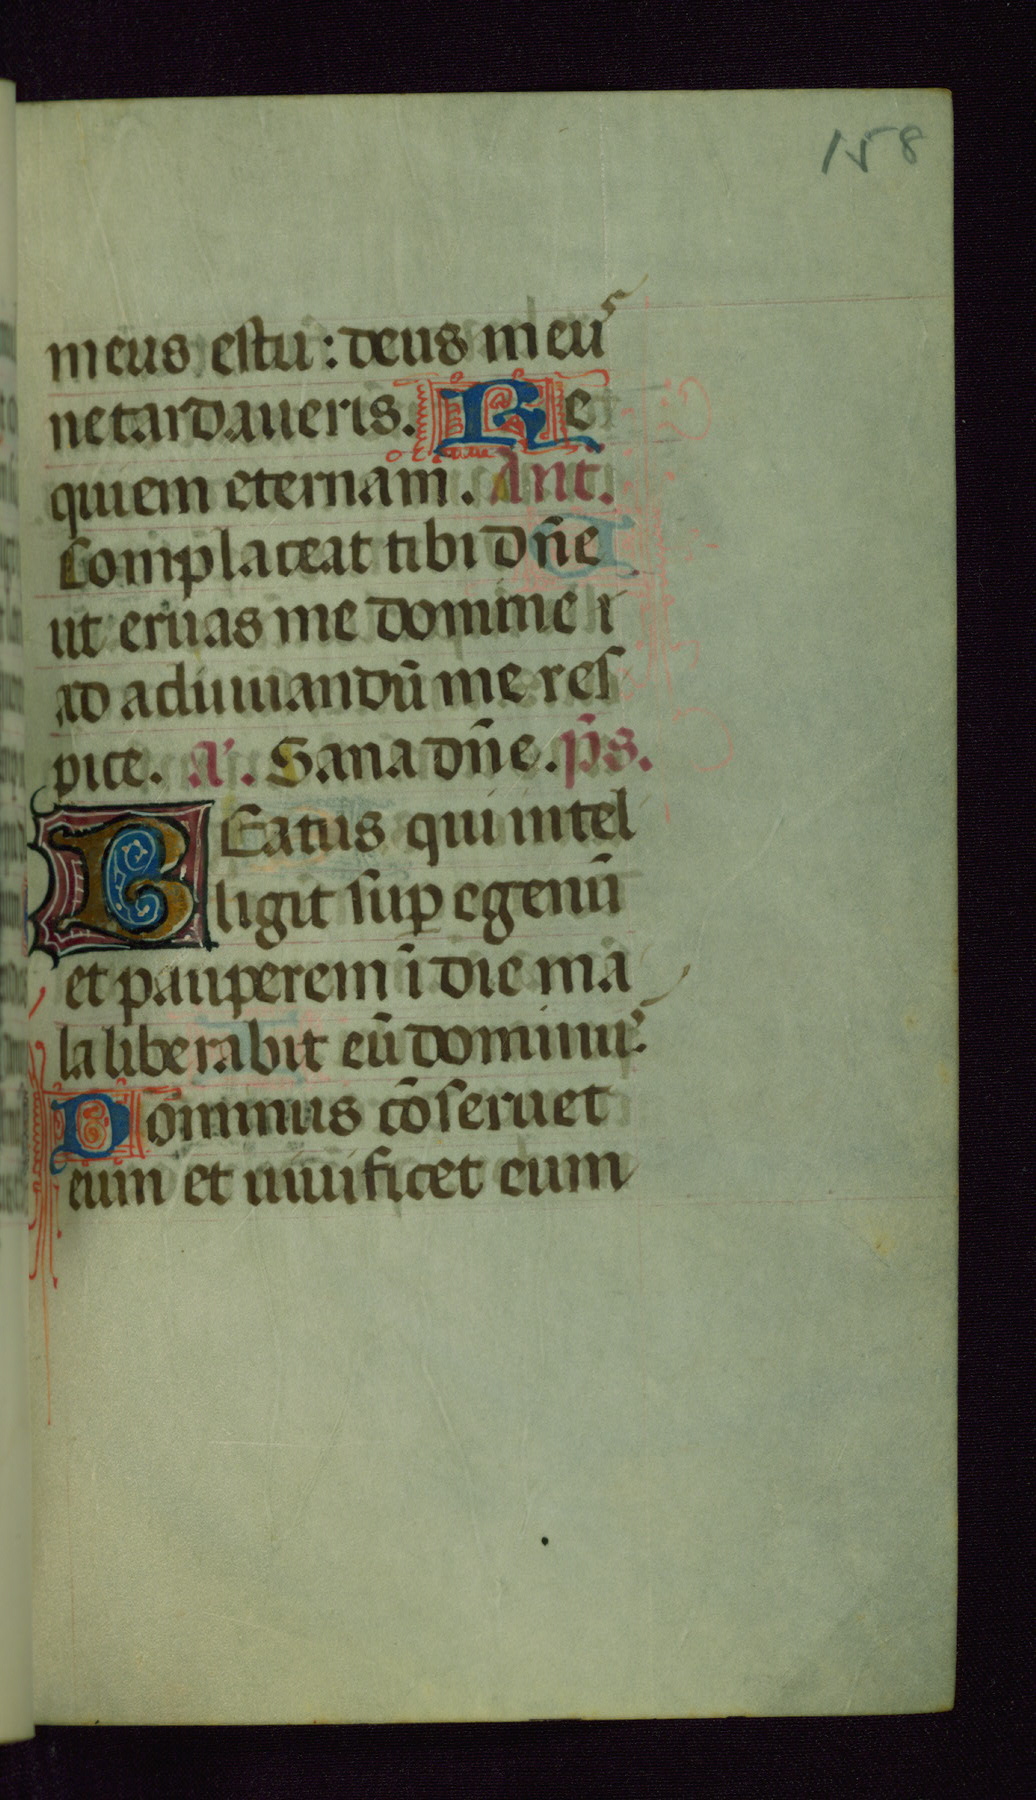 158
meus es tu: deus meus
ne tardaueris. Re
quiem eternam. Ant̄.
Complaceat tibi dn̄e
ut eruas me domine
ad adiuuandū me res
pice. A. Sana dn̄e. p̄s.
BEatus qui intel
ligit sup egenū
et pauperem ī die ma
la liberabit eū dominus.
Dominus cōseruet
eum et uiuificet eum